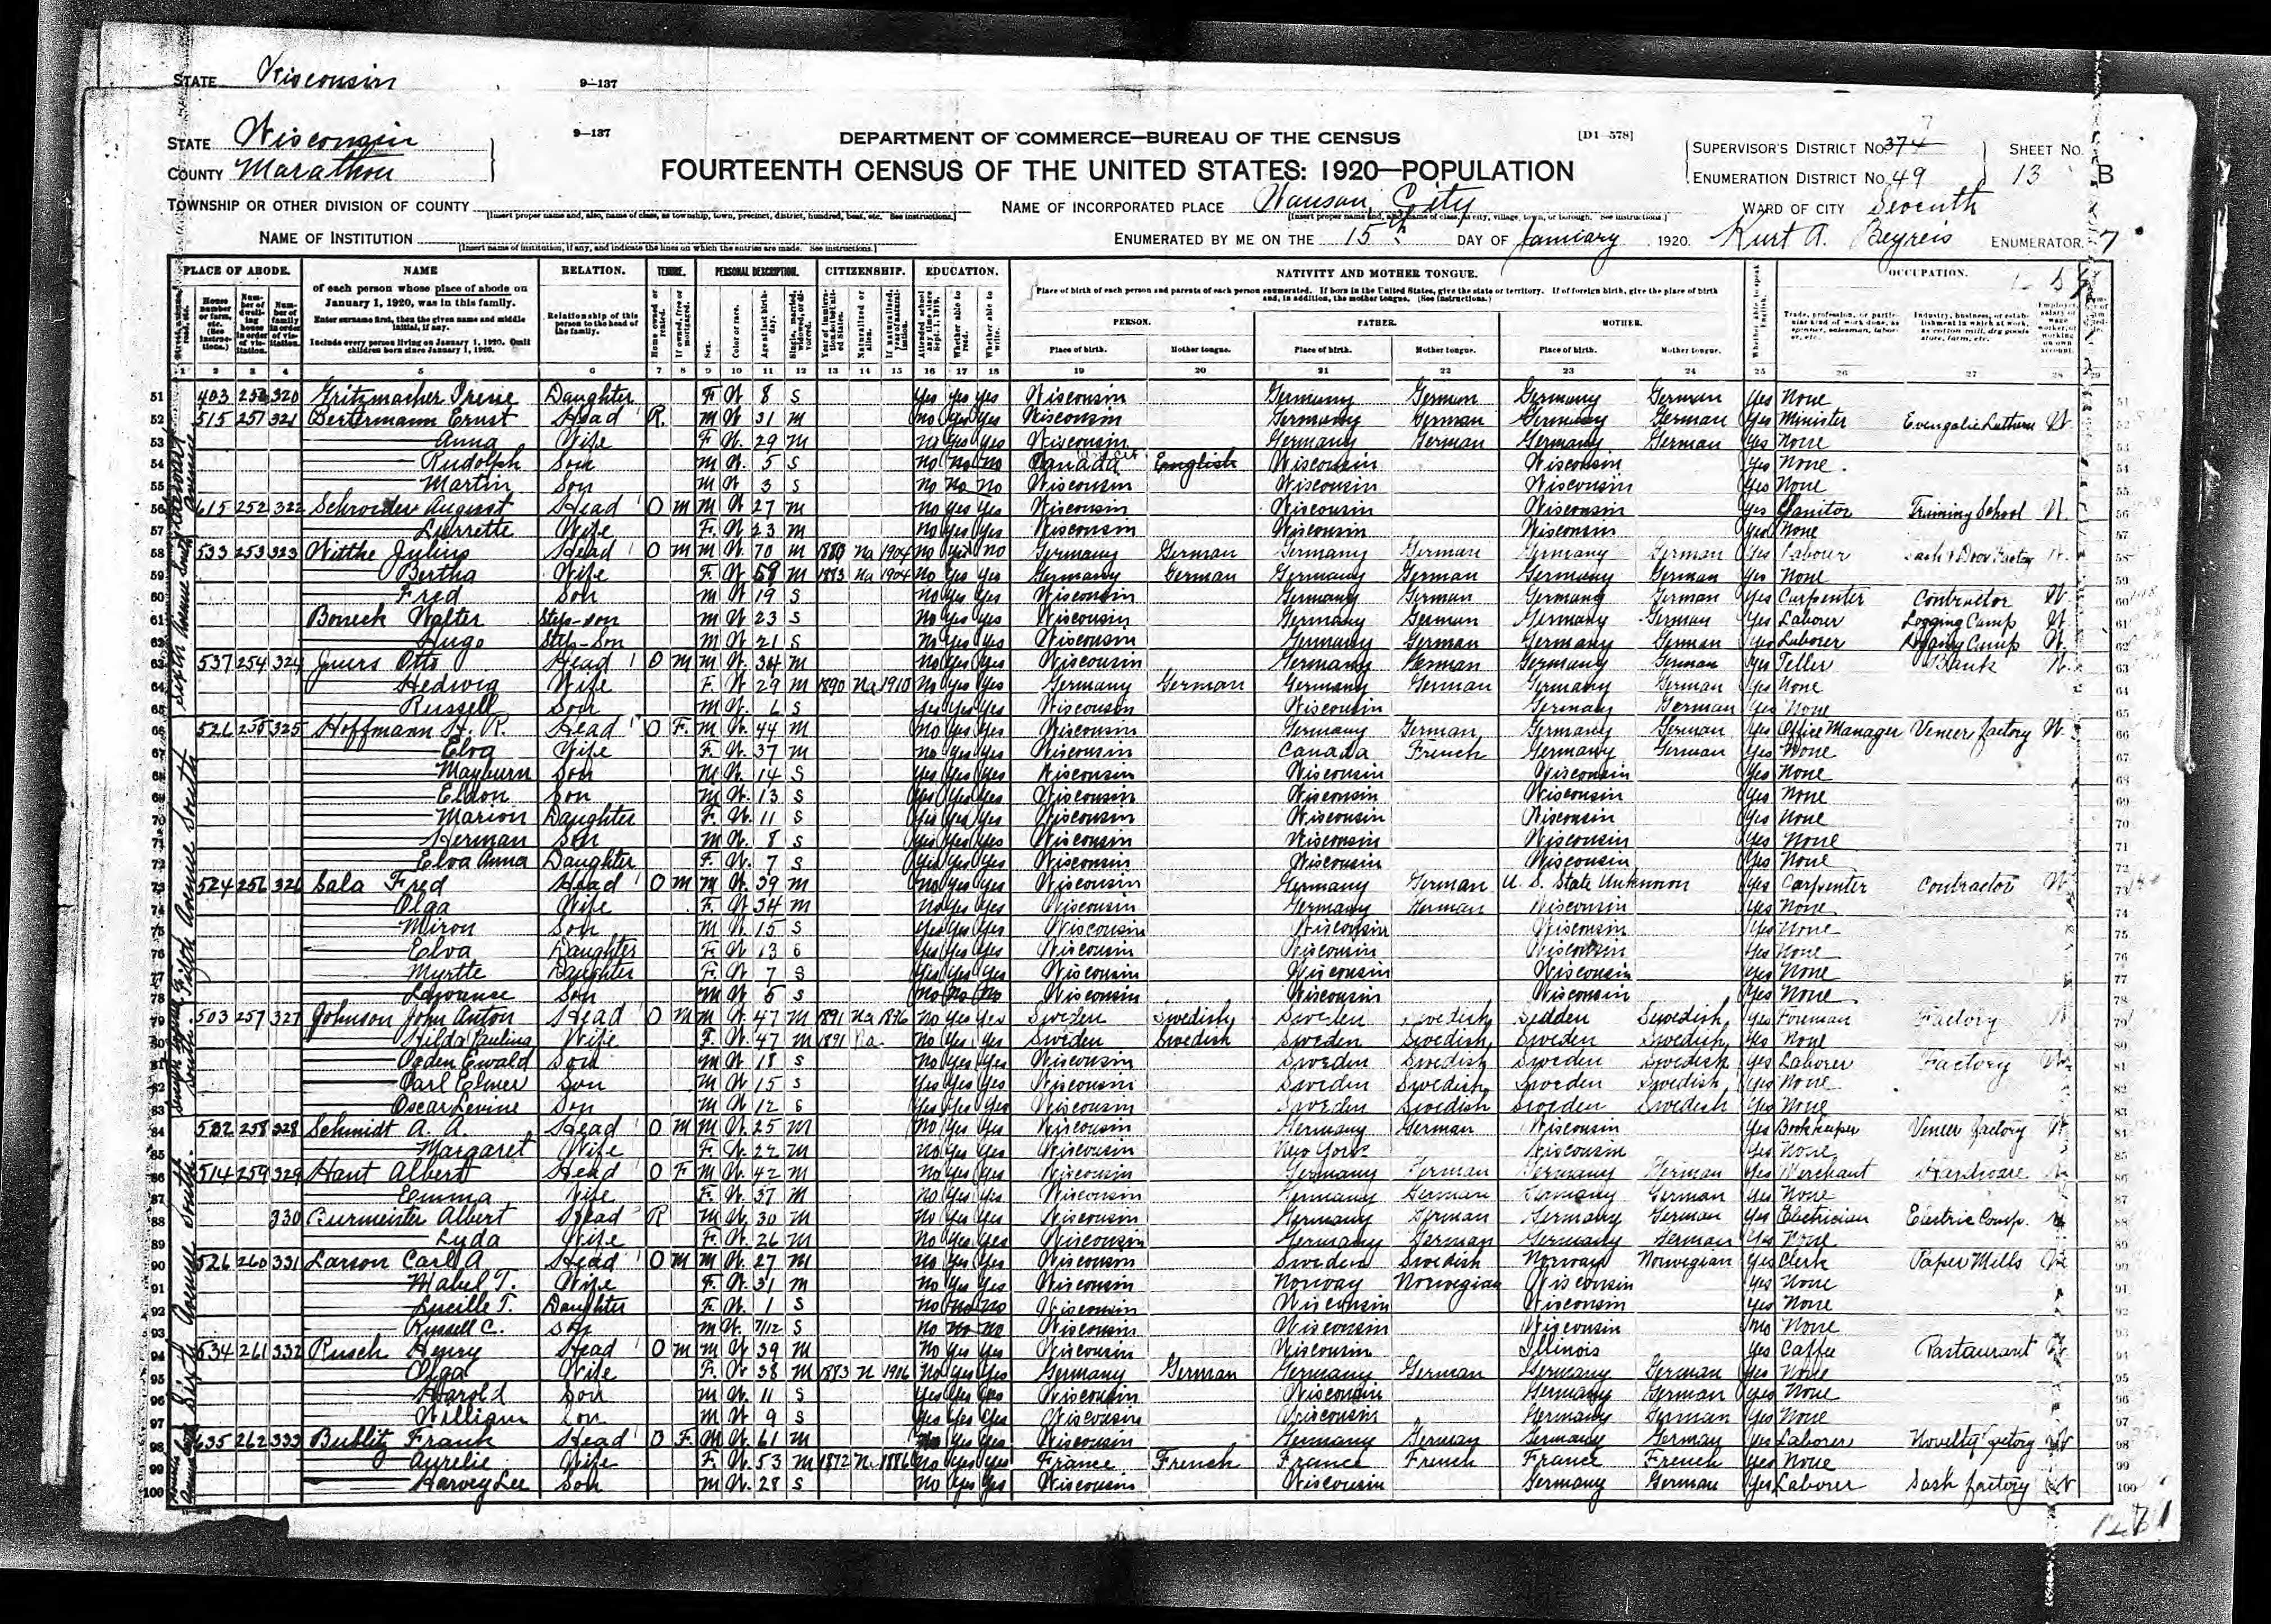 STATE Wisconsin 9-137
STATE Wisconsin 9-137 DEPARTMENT OF COMMERCE—BUREAU OF THE CENSUS [D1-578]
COUNTY Marathon FOURTEENTH CENSUS OF THE UNITED STATES: 1920—POPULATION
SUPERVISOR'S DISTRICT No. 374 7 SHEET NO.
ENUMERATION DISTRICT No. 49 13 B
TOWNSHIP OR OTHER DIVISION OF COUNTY NAME OF INCORPORATED PLACE Wausau, City WARD OF CITY Seventh
[Insert proper name and, also, name of class, as township, town, precinct, district, hundred, beat, etc. See instructions.] [Insert proper name and, also, name of class, as city, village, town, or borough. See instructions.]
NAME OF INSTITUTION ENUMERATED BY ME ON THE 15th DAY OF January, 1920. Kurt A. Beyreis ENUMERATOR. 7
[Insert name of institution, if any, and indicate the lines on which the entries are made. See instructions.]
PLACE OF ABODE. NAME RELATION. TENURE. PERSONAL DESCRIPTION. CITIZENSHIP. EDUCATION. NATIVITY AND MOTHER TONGUE. OCCUPATION.
of each person whose place of abode on January 1, 1920, was in this family.
Enter surname first, then the given name and middle initial, if any.
Include every person living on January 1, 1920. Omit children born since January 1, 1920.
Relationship of this person to the head of the family.
Place of birth of each person and parents of each person enumerated. If born in the United States, give the state or territory. If of foreign birth, give the place of birth and, in addition, the mother tongue. (See instructions.)
PERSON. FATHER. MOTHER.
Place of birth. Mother tongue. Place of birth. Mother tongue. Place of birth. Mother tongue.
1 2 3 4 5 6 7 8 9 10 11 12 13 14 15 16 17 18 19 20 21 22 23 24 25 26 27 28 29
51 403 250 320 Gritzmacher Irene Daughter F W 8 S Yes yes yes Wisconsin Germany German Germany German Yes None
52 515 251 321 Bertermann Ernst Head R. M W 31 M no Yes Yes Wisconsin Germany German Germany German Yes Minister Evengalic Luthern W
53 Anna Wife F W. 29 M no Yes Yes Wisconsin Germany German Germany German Yes None
54 Rudolph Son M W. 5 S no no no Canada English Wisconsin Wisconsin Yes None.
55 Martin Son M W 3 S no no no Wisconsin Wisconsin Wisconsin Yes None
56 615 252 322 Schroeder August Head O M M W 27 M no yes Yes Wisconsin Wisconsin Wisconsin Yes Janitor Training School W.
57 Lurrette Wife F. W 23 M no Yes Yes Wisconsin Wisconsin Wisconsin Yes None
58 533 253 323 Witthe Julius Head O M M W. 70 M 1880 Na 1904 no Yes no Germany German Germany German Germany German Yes Labourer Sash & Door Factory W.
59 Bertha Wife F. W 58 M 1883 Na 1904 No Yes Yes Germany German Germany German Germany German Yes None
60 Fred Son M W 19 S No Yes Yes Wisconsin Germany German Germany German Yes Carpenter Contractor W.
61 Boneck Walter Step-son M W 23 S No Yes Yes Wisconsin Germany German Germany German Yes Laborer Logging Camp W
62 Hugo Step-Son M W 21 S No Yes Yes Wisconsin Germany German Germany German Yes Laborer Logging Camp W.
63 537 254 324 Juers Otto Head O M M W. 34 M no Yes Yes Wisconsin Germany German Germany German Yes Teller Bank W.
64 Hedwig Wife F. W 29 M 1890 Na 1910 No Yes Yes Germany German Germany German Germany German Yes None
65 Russell Son M W. 6 S Yes Yes Yes Wisconsin Wisconsin Germany German Yes None
66 526 255 325 Hoffmann H. R. Head O F. M W. 44 M no Yes Yes Wisconsin Germany German Germany German Yes Office Manager Veneer factory W.
67 Elva Wife F. W. 37 M no Yes Yes Wisconsin Canada French Germany German Yes None
68 Mayburn Son M W. 14 S Yes Yes Yes Wisconsin Wisconsin Wisconsin Yes None
69 Eldon Son M W. 13 S Yes Yes Yes Wisconsin Wisconsin Wisconsin Yes None
70 Marion Daughter F. W. 11 S Yes Yes Yes Wisconsin Wisconsin Wisconsin Yes None
71 Herman Son M W. 8 S Yes Yes Yes Wisconsin Wisconsin Wisconsin Yes None
72 Elva Anna Daughter F. W. 7 S Yes Yes Yes Wisconsin Wisconsin Wisconsin Yes None
73 524 256 326 Sala Fred Head O M M W. 39 M no Yes Yes Wisconsin Germany German U. S. State Unknown Yes Carpenter Contractor W
74 Olga Wife F. W 34 M No Yes Yes Wisconsin Germany German Wisconsin Yes None
75 Miron Son M W. 15 S Yes Yes Yes Wisconsin Wisconsin Wisconsin Yes None
76 Eelva Daughter F. W 13 S Yes Yes Yes Wisconsin Wisconsin Wisconsin Yes None
77 Myrtte Daughter F. W 7 S Yes Yes Yes Wisconsin Wisconsin Wisconsin Yes None
78 Lawranse Son M W 5 S no no no Wisconsin Wisconsin Wisconsin Yes None
79 503 257 327 Johnson John Anton Head O M M W. 47 M 1891 Na 1896 no Yes Yes Sweden Swedish Sweden Swedish Sweden Swedish Yes Foreman Factory
80 Hilda Paulina Wife F. W. 47 M 1891 Na No Yes Yes Sweden Swedish Sweden Swedish Sweden Swedish Yes None
81 Ogden Ewald Son M W 18 S No Yes Yes Wisconsin Sweden Swedish Sweden Swedish Yes Laborer Factory W
82 Carl Elmer Son M W 15 S Yes Yes Yes Wisconsin Sweden Swedish Sweden Swedish Yes None
83 Oscar Levine Son M W 12 S Yes Yes Yes Wisconsin Sweden Swedish Sweden Swedish Yes None
84 502 258 328 Schmidt A. A. Head O M M W. 25 M No Yes Yes Wisconsin Germany German Wisconsin Yes Bookkeeper Veneer factory W
85 Margaret Wife F. W. 22 M No Yes Yes Wisconsin New York Wisconsin Yes None
86 514 259 329 Hant Albert Head O F M W. 42 M No Yes Yes Wisconsin Germany German Germany German Yes Merchant Hardware
87 Emma Wife F. W. 37 M No Yes Yes Wisconsin Germany German Germany German Yes None
88 330 Burmeister Albert Head R M W. 30 M No Yes Yes Wisconsin Germany German Germany German Yes Electrician Electric Comp. W
89 Lyda Wife F. W. 26 M No Yes Yes Wisconsin Germany German Germany German Yes None
90 526 260 331 Larson Carl A Head O M M W. 27 M No Yes Yes Wisconsin Sweden Swedish Norway Norwegian Yes Clerk Paper Mills W
91 Mabel T. Wife F. W. 31 M No Yes Yes Wisconsin Norway Norwegian Wisconsin Yes None
92 Lucille T. Daughter F. W. 1 S No no no Wisconsin Wisconsin Wisconsin Yes None
93 Russell C. Son M W. 7/12 S No no no Wisconsin Wisconsin Wisconsin no None
94 534 261 332 Rusch Henry Head O M M W 39 M No Yes Yes Wisconsin Wisconsin Illinois Yes Caffee Rastaurant W.
95 Olga Wife F. W 38 M 1883 N 1906 No Yes Yes Germany German Germany German Germany German Yes None
96 Harold Son M W. 11 S Yes Yes Yes Wisconsin Wisconsin Germany German Yes None
97 William Son M W 9 S Yes Yes Yes Wisconsin Wisconsin Germany German Yes None
98 635 262 333 Bublitz Frank Head O F. M W. 61 M no Yes Yes Wisconsin Germany German Germany German Yes Laborer Novelty factory W
99 Aurelie Wife F. W. 53 M 1872 Na 1886 No Yes Yes France French France French France French Yes None
100 Harvey Lee Son M W. 28 S No Yes Yes Wisconsin Wisconsin Germany German Yes Laborer Sash factory W
1261